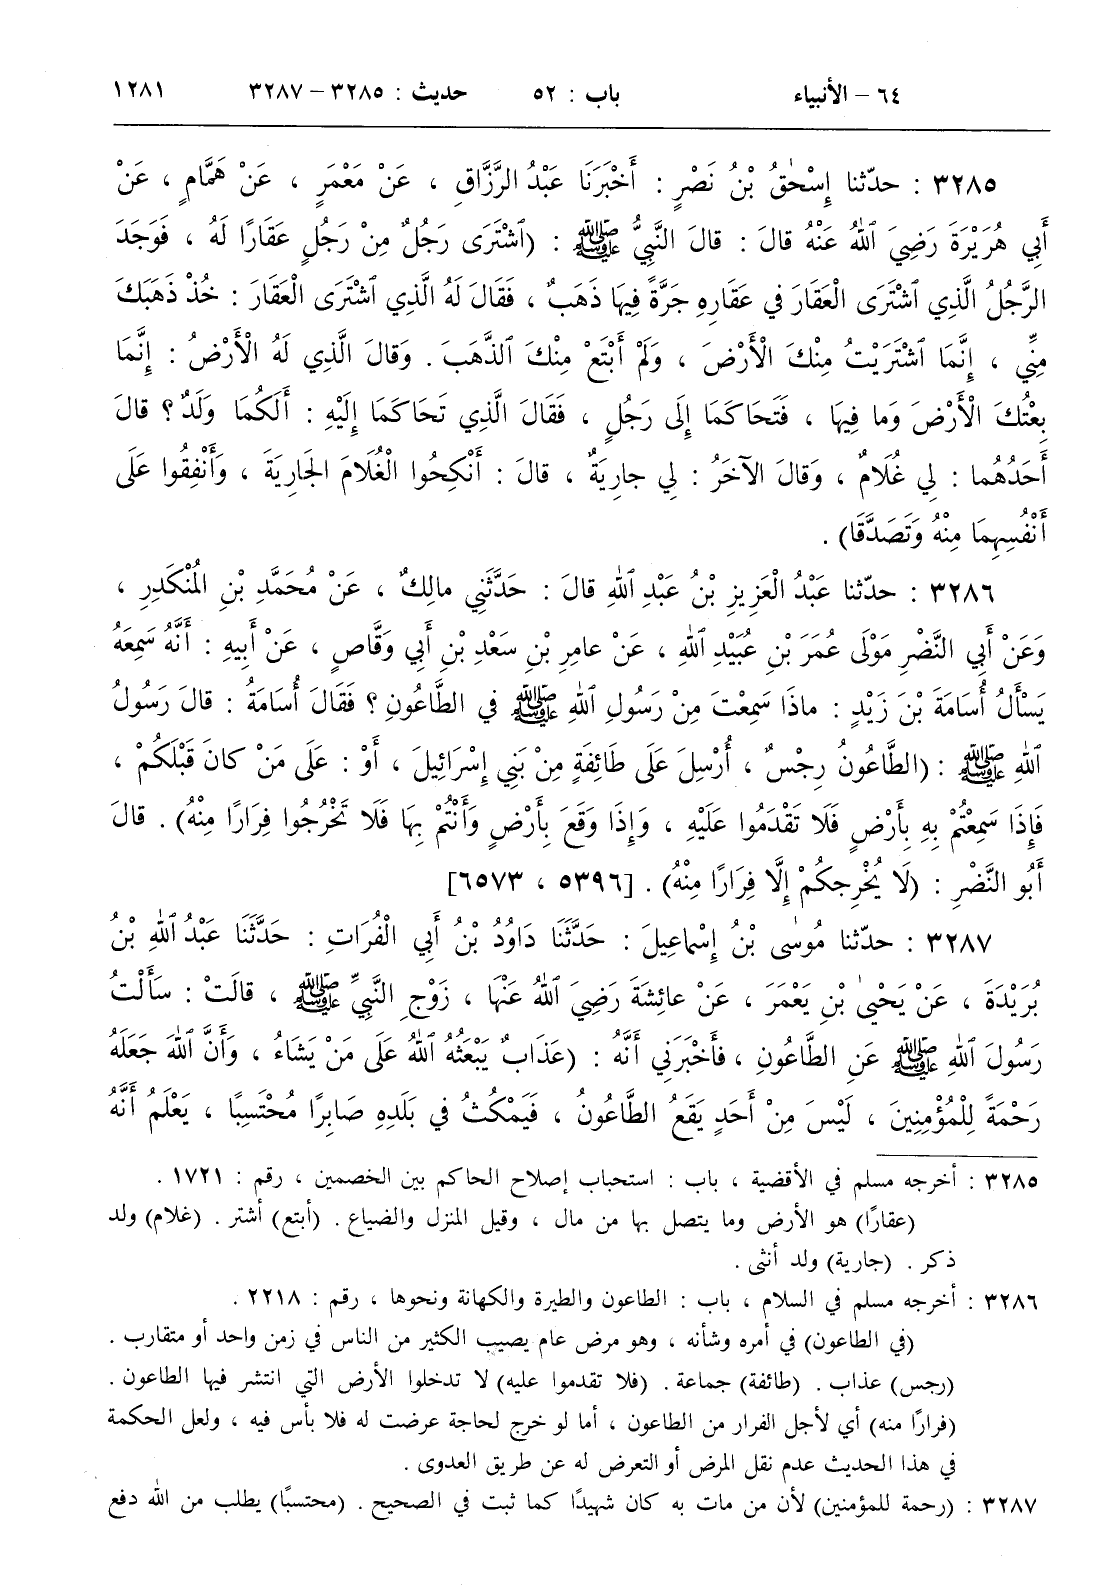 ٦٤ – الأنبياء باب : ٥٢ حديث : ٣٢٨٥ – ٣٢٨٧ ١٢٨١
٣٢٨٥ : حدّثنا إِسْحٰقُ بْنُ نَصْرٍ : أَخْبَرَنَا عَبْدُ الرَّزَّاقِ ، عَنْ مَعْمَرٍ ، عَنْ هَمَّامٍ ، عَنْ
أَبِي هُرَيْرَةَ رَضِيَ ٱللهُ عَنْهُ قالَ : قالَ النَّبِيُّ ﷺ : (ٱشْتَرَى رَجُلٌ مِنْ رَجُلٍ عَقَارًا لَهُ ، فَوَجَدَ
الرَّجُلُ الَّذِي ٱشْتَرَى الْعَقَارَ في عَقَارِهِ جَرَّةً فِيهَا ذَهَبٌ ، فَقَالَ لَهُ الَّذِي ٱشْتَرَى الْعَقَارَ : خُذْ ذَهَبَكَ
مِنِّي ، إِنَّمَا ٱشْتَرَيْتُ مِنْكَ الْأَرْضَ ، وَلَمْ أَبْتَعْ مِنْكَ ٱلذَّهَبَ . وَقالَ الَّذِي لَهُ الْأَرْضُ : إِنَّمَا
بِعْتُكَ الْأَرْضَ وَما فِيهَا ، فَتَحَاكَمَا إِلَى رَجُلٍ ، فَقَالَ الَّذِي تَحَاكَمَا إِلَيْهِ : أَلَكُمَا وَلَدٌ ؟ قالَ
أَحَدُهُما : لِي غُلَامٌ ، وَقالَ الآخَرُ : لِي جارِيَةٌ ، قالَ : أَنْكِحُوا الْغُلَامَ الجَارِيَةَ ، وَأَنْفِقُوا عَلَى
أَنْفُسِهِمَا مِنْهُ وَتَصَدَّقَا) .
٣٢٨٦ : حدّثنا عَبْدُ الْعَزِيزِ بْنُ عَبْدِ ٱللهِ قالَ : حَدَّثَنِي مالِكٌ ، عَنْ مُحَمَّدِ بْنِ المُنْكَدِرِ ،
وَعَنْ أَبِي النَّضْرِ مَوْلَى عُمَرَ بْنِ عُبَيْدِ ٱللهِ ، عَنْ عامِرِ بْنِ سَعْدِ بْنِ أَبِي وَقَّاصٍ ، عَنْ أَبِيهِ : أَنَّهُ سَمِعَهُ
يَسْأَلُ أُسَامَةَ بْنَ زَيْدٍ : ماذَا سَمِعْتَ مِنْ رَسُولِ ٱللهِ ﷺ في الطَّاعُونِ ؟ فَقَالَ أُسَامَةُ : قالَ رَسُولُ
ٱللهِ ﷺ : (الطَّاعُونُ رِجْسٌ ، أُرْسِلَ عَلَى طَائِفَةٍ مِنْ بَنِي إِسْرَائِيلَ ، أَوْ : عَلَى مَنْ كانَ قَبْلَكُمْ ،
فَإِذَا سَمِعْتُمْ بِهِ بِأَرْضٍ فَلَا تَقْدَمُوا عَلَيْهِ ، وَإِذَا وَقَعَ بِأَرْضٍ وَأَنْتُمْ بِهَا فَلَا تَخْرُجُوا فِرَارًا مِنْهُ) . قالَ
أَبُو النَّضْرِ : (لَا يُخْرِجكُمْ إِلَّا فِرَارًا مِنْهُ) . [٥٣٩٦ ، ٦٥٧٣]
٣٢٨٧ : حدّثنا مُوسٰى بْنُ إِسْماعِيلَ : حَدَّثَنَا دَاوُدُ بْنُ أَبِي الْفُرَاتِ : حَدَّثَنَا عَبْدُ ٱللهِ بْنُ
بُرَيْدَةَ ، عَنْ يَحْيىٰ بْنِ يَعْمَرَ ، عَنْ عائِشَةَ رَضِيَ ٱللهُ عَنْهَا ، زَوْجِ النَّبِيِّ ﷺ ، قالَتْ : سَأَلْتُ
رَسُولَ ٱللهِ ﷺ عَنِ الطَّاعُونِ ، فَأَخْبَرَنِي أَنَّهُ : (عَذَابٌ يَبْعَثُهُ ٱللهُ عَلَى مَنْ يَشَاءُ ، وَأَنَّ ٱللهَ جَعَلَهُ
رَحْمَةً لِلْمُؤْمِنِينَ ، لَيْسَ مِنْ أَحَدٍ يَقَعُ الطَّاعُونُ ، فَيَمْكُثُ في بَلَدِهِ صَابِرًا مُحْتَسِبًا ، يَعْلَمُ أَنَّهُ
٣٢٨٥ : أخرجه مسلم في الأقضية ، باب : استحباب إصلاح الحاكم بين الخصمين ، رقم : ١٧٢١ .
(عقارًا) هو الأرض وما يتصل بها من مال ، وقيل المنزل والضياع . (أبتع) أشتر . (غلام) ولد
ذكر . (جارية) ولد أنثى .
٣٢٨٦ : أخرجه مسلم في السلام ، باب : الطاعون والطيرة والكهانة ونحوها ، رقم : ٢٢١٨ .
(في الطاعون) في أمره وشأنه ، وهو مرض عام يصيب الكثير من الناس في زمن واحد أو متقارب .
(رجس) عذاب . (طائفة) جماعة . (فلا تقدموا عليه) لا تدخلوا الأرض التي انتشر فيها الطاعون .
(فرارًا منه) أي لأجل الفرار من الطاعون ، أما لو خرج لحاجة عرضت له فلا بأس فيه ، ولعل الحكمة
في هذا الحديث عدم نقل المرض أو التعرض له عن طريق العدوى .
٣٢٨٧ : (رحمة للمؤمنين) لأن من مات به كان شهيدًا كما ثبت في الصحيح . (محتسبًا) يطلب من الله دفع